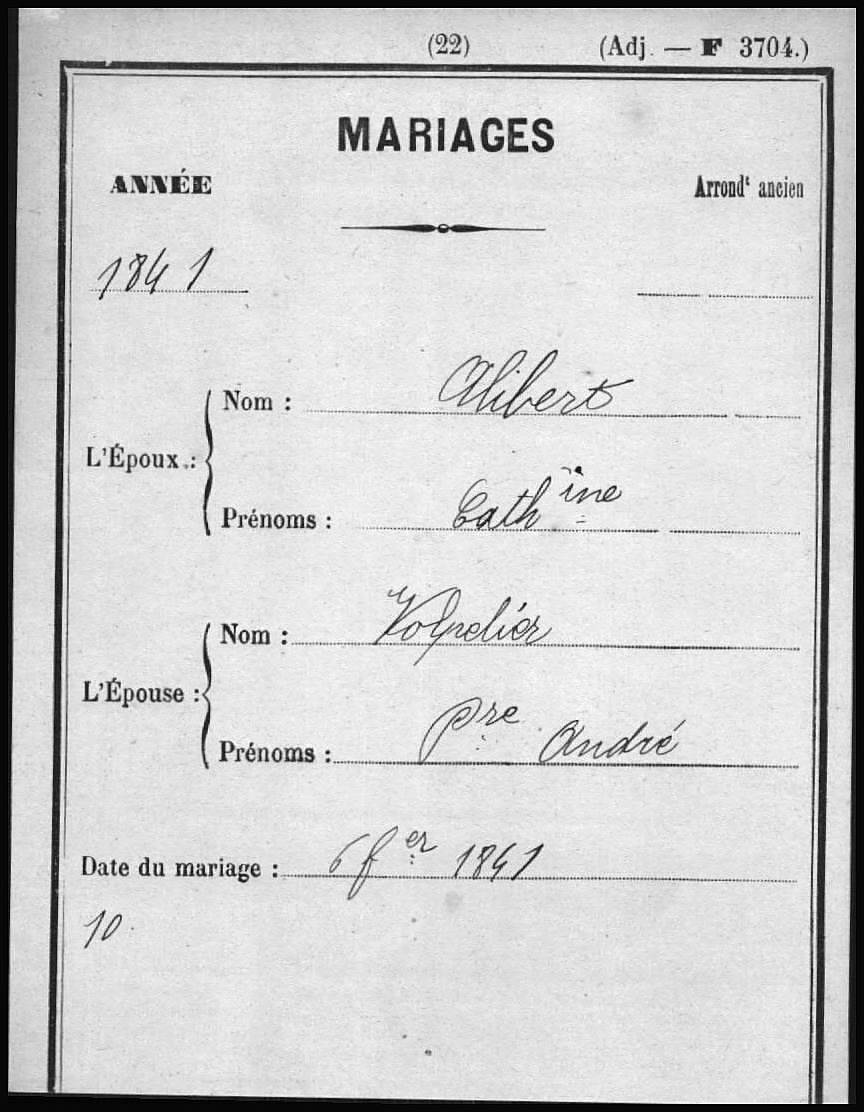 (22) (Adj. — F 3704.)
MARIAGES
ANNÉE Arrondt ancien
1841
L'Époux : Nom : Alibert
Prénoms : Cathine
L'Épouse : Nom : Volpelier
Prénoms : Pre André
Date du mariage : 6 fer 1841
10